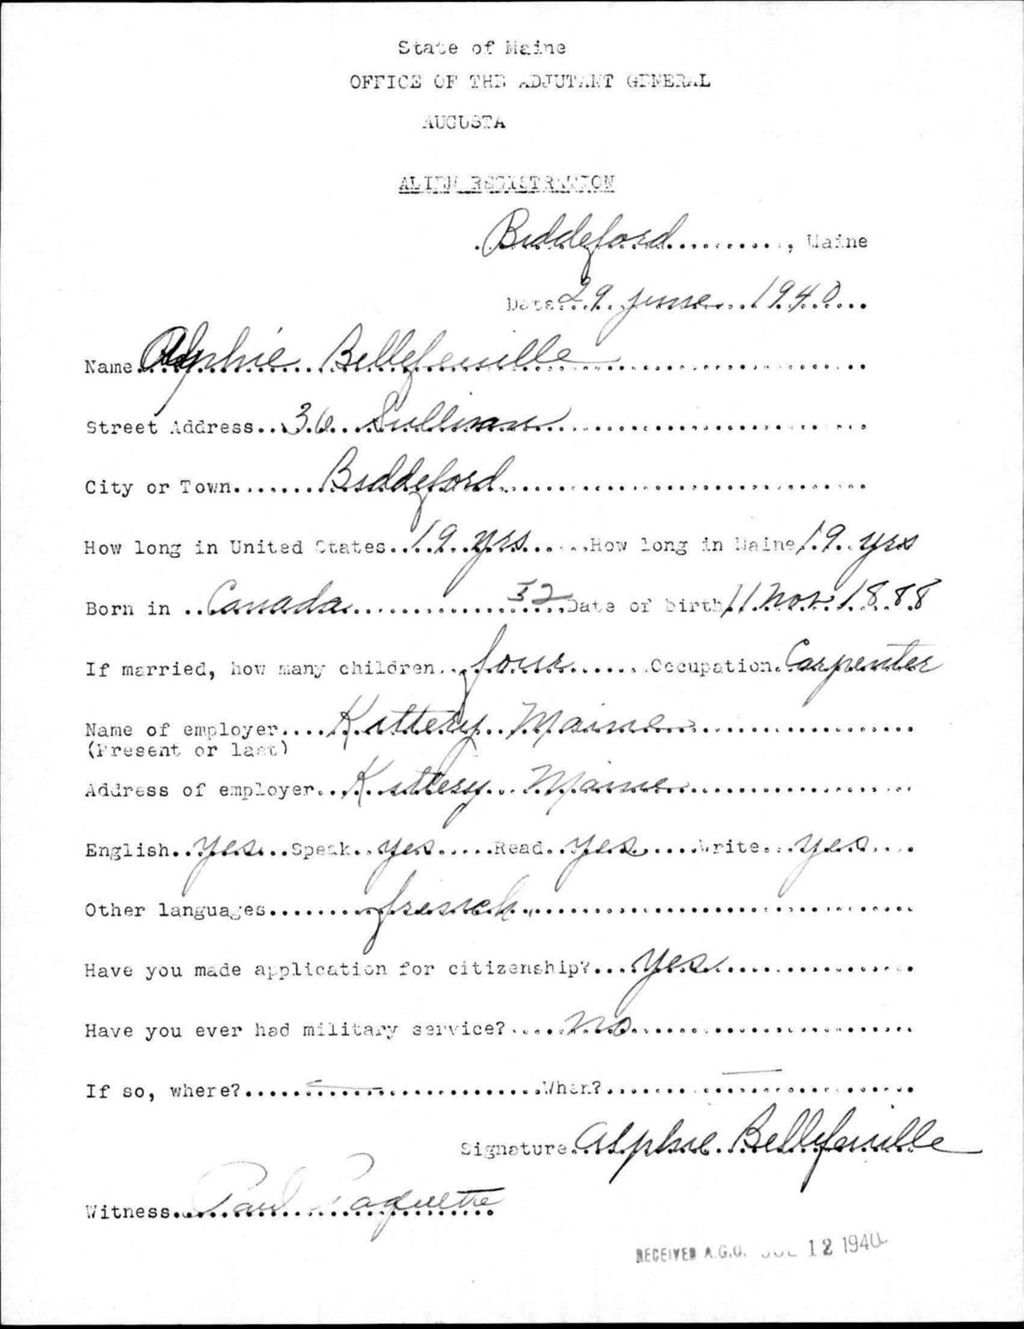 State of Maine
OFFICE OF THE ADJUTANT GENERAL
AUGUSTA
ALIEN REGISTRATION
Biddeford, Maine
Date 29 June 1940
Name Alphie Bellefeuille
Street Address 36 Sullivan
City or Town Biddeford
How long in United States 19 yrs How long in Maine 19 yrs
Born in Canada 52 Date of birth 11 Nov. 1888
If married, how many children four Occupation Carpenter
Name of employer Kittery Maine
(Present or last)
Address of employer Kittery Maine
English yes Speak yes Read yes Write yes
Other languages french
Have you made application for citizenship? yes
Have you ever had military service? no
If so, where? — When? —
Signature Alphie Bellefeuille
Witness Paul Paquette
RECEIVED A.G.O. JUL 12 1940